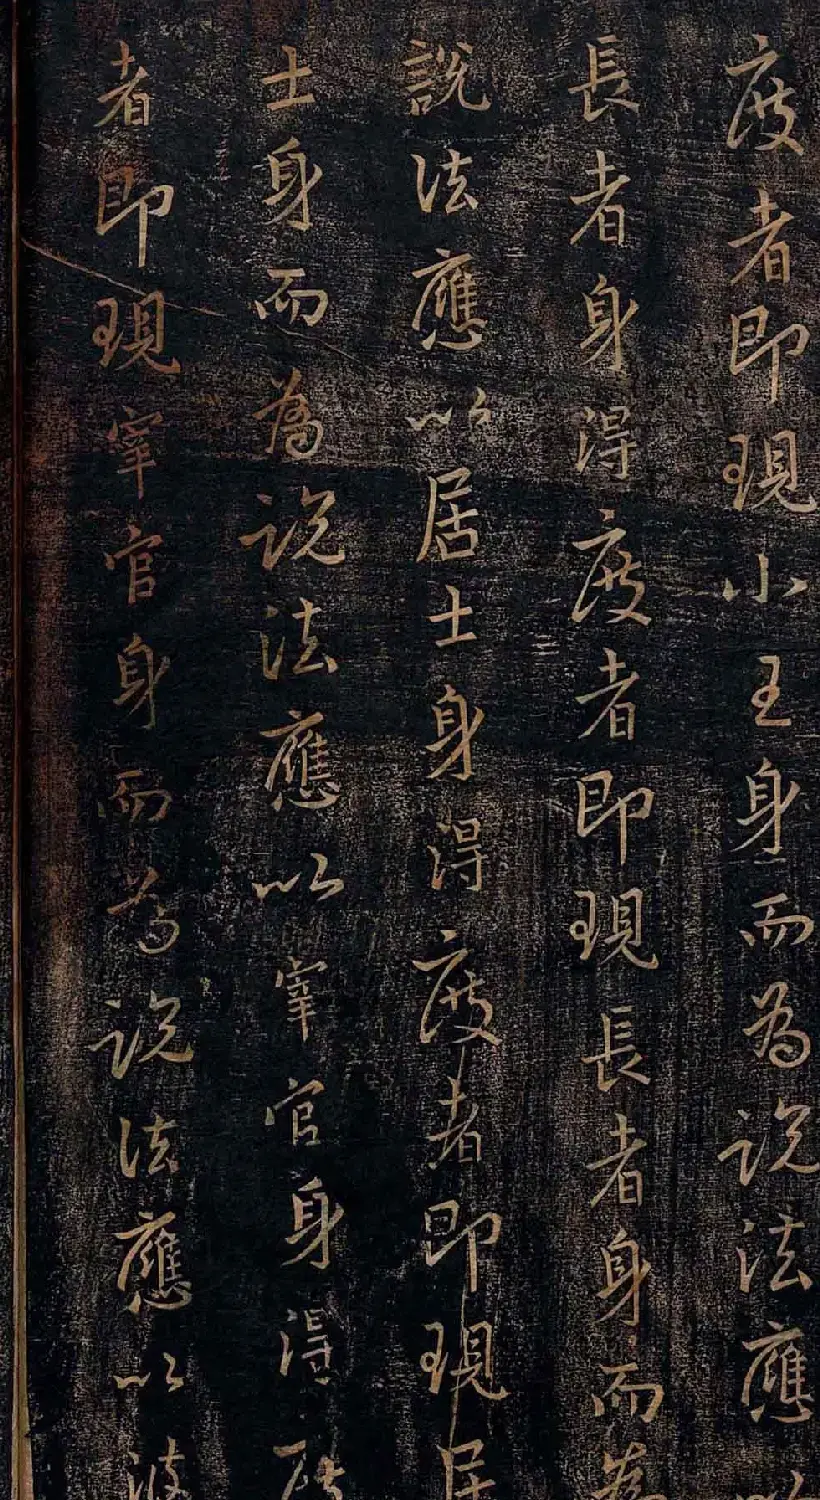 度者即現小王身而為説法應以
長者身得度者即現長者身而為
說法應以居士身得度者即現居
士身而為説法應以宰官身得度
者即現宰官身而為説法應以婆